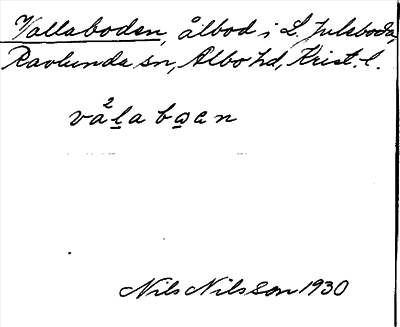 Vallaboden, ålbod i L. Juleboda,
Ravlunda sn, Albo hd, Krist. l.
va²laboan
Nils Nilsson 1930